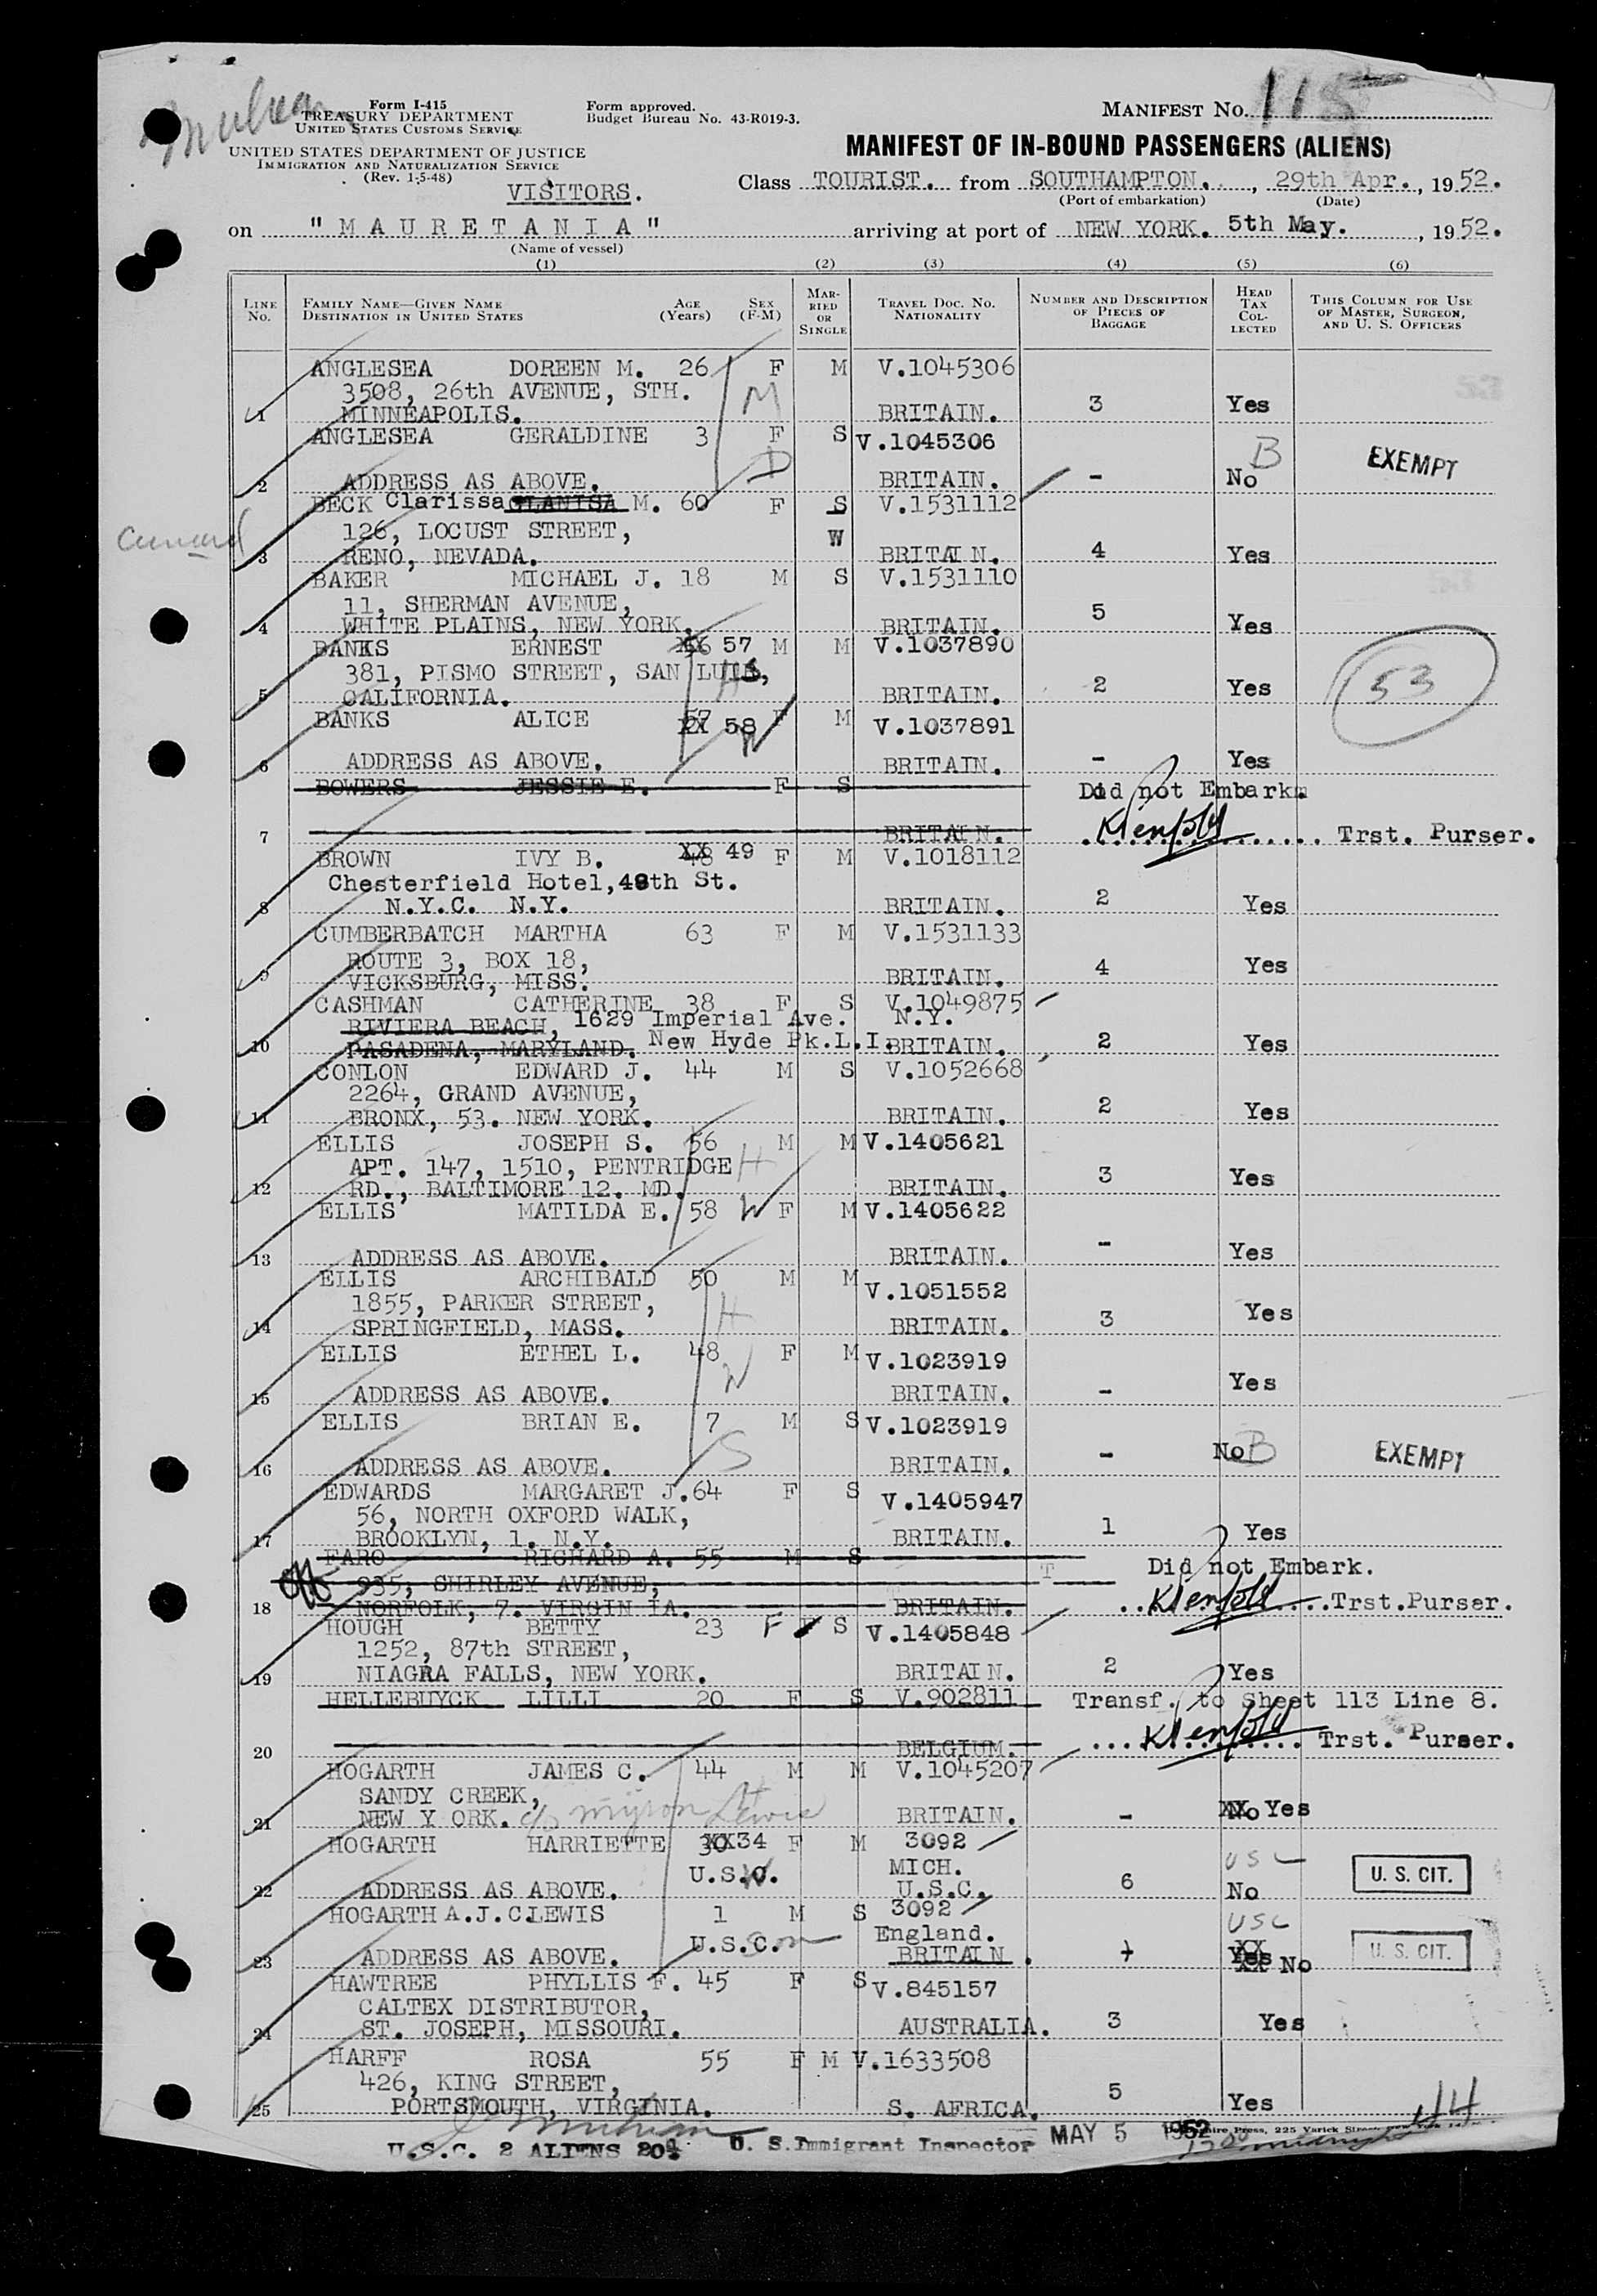 Form I-415
TREASURY DEPARTMENT
UNITED STATES CUSTOMS SERVICE
UNITED STATES DEPARTMENT OF JUSTICE
IMMIGRATION AND NATURALIZATION SERVICE
(Rev. 1-5-48)
Form approved.
Budget Bureau No. 43-R019-3.
MANIFEST No. 115
MANIFEST OF IN-BOUND PASSENGERS (ALIENS)
VISITORS.
Class TOURIST. from SOUTHAMPTON. , 29th Apr. , 1952.
(Port of embarkation) (Date)
on "MAURETANIA" arriving at port of NEW YORK. 5th May. , 1952.
(Name of vessel)
(1) (2) (3) (4) (5) (6)
LINE No. FAMILY NAME—GIVEN NAME DESTINATION IN UNITED STATES AGE (Years) SEX (F-M) MARRIED OR SINGLE TRAVEL DOC. NO. NATIONALITY NUMBER AND DESCRIPTION OF PIECES OF BAGGAGE HEAD TAX COLLECTED THIS COLUMN FOR USE OF MASTER, SURGEON, AND U. S. OFFICERS
ANGLESEA DOREEN M. 26 F M V.1045306
3508, 26th AVENUE, STH. M
1 MINNEAPOLIS. BRITAIN. 3 Yes
ANGLESEA GERALDINE 3 F S V.1045306
2 ADDRESS AS ABOVE. D BRITAIN. - No B EXEMPT
BECK Clarissa GLANISA M. 60 F S V.1531112
126, LOCUST STREET, W
Cunard 3 RENO, NEVADA. BRITAIN. 4 Yes
BAKER MICHAEL J. 18 M S V.1531110
11, SHERMAN AVENUE,
4 WHITE PLAINS, NEW YORK. BRITAIN. 5 Yes
BANKS ERNEST 56 57 M M V.1037890
381, PISMO STREET, SAN LUIS, H
5 CALIFORNIA. BRITAIN. 2 Yes 53
BANKS ALICE 57 58 F M V.1037891
W
6 ADDRESS AS ABOVE. BRITAIN. - Yes
BOWERS JESSIE E. F S Did not Embark.
7 BRITAIN. Trst. Purser.
BROWN IVY B. 48 49 F M V.1018112
Chesterfield Hotel, 49th St.
8 N.Y.C. N.Y. BRITAIN. 2 Yes
CUMBERBATCH MARTHA 63 F M V.1531133
ROUTE 3, BOX 18,
9 VICKSBURG, MISS. BRITAIN. 4 Yes
CASHMAN CATHERINE 38 F S V.1049875
RIVIERA BEACH, 1629 Imperial Ave. N.Y.
10 PASADENA, MARYLAND. New Hyde Pk.L.I. BRITAIN. 2 Yes
CONLON EDWARD J. 44 M S V.1052668
2264, GRAND AVENUE,
11 BRONX, 53. NEW YORK. BRITAIN. 2 Yes
ELLIS JOSEPH S. 56 M M V.1405621
APT. 147, 1510, PENTRIDGE H
12 RD., BALTIMORE 12. MD. BRITAIN. 3 Yes
ELLIS MATILDA E. 58 W F M V.1405622
13 ADDRESS AS ABOVE. BRITAIN. - Yes
ELLIS ARCHIBALD 50 M M V.1051552
1855, PARKER STREET, H
14 SPRINGFIELD, MASS. BRITAIN. 3 Yes
ELLIS ETHEL L. 48 F M V.1023919
W
15 ADDRESS AS ABOVE. BRITAIN. - Yes
ELLIS BRIAN E. 7 M S V.1023919
16 ADDRESS AS ABOVE. S BRITAIN. - No B EXEMPT
EDWARDS MARGARET J. 64 F S V.1405947
56, NORTH OXFORD WALK,
17 BROOKLYN, 1. N.Y. BRITAIN. 1 Yes
FARO RICHARD A. 55 M S Did not Embark.
935, SHIRLEY AVENUE, T
18 NORFOLK, 7. VIRGINIA. BRITAIN. Trst.Purser.
HOUGH BETTY 23 F S V.1405848
1252, 87th STREET,
19 NIAGRA FALLS, NEW YORK. BRITAIN. 2 Yes
HELLEBUYCK LILLI 20 F S V.902811 Transf. to Sheet 113 Line 8.
20 BELGIUM. Trst. Purser.
HOGARTH JAMES C. 44 M M V.1045207
SANDY CREEK, H
21 NEW YORK. c/o Myron Lewis BRITAIN. - No Yes
HOGARTH HARRIETTE 30 34 F M 3092
U.S.C. W MICH. USC
22 ADDRESS AS ABOVE. U.S.C. 6 No U. S. CIT.
HOGARTH A.J.C.LEWIS 1 M S 3092 USC
U.S.C. Son England.
23 ADDRESS AS ABOVE. BRITAIN. 1 Yes No U. S. CIT.
HAWTREE PHYLLIS F. 45 F S V.845157
CALTEX DISTRIBUTOR,
24 ST. JOSEPH, MISSOURI. AUSTRALIA. 3 Yes
HARFF ROSA 55 F M V.1633508
426, KING STREET,
25 PORTSMOUTH, VIRGINIA. S. AFRICA. 5 Yes
U.S.C. 2 ALIENS 20 U. S. Immigrant Inspector MAY 5 1952 Press, 225 Varick